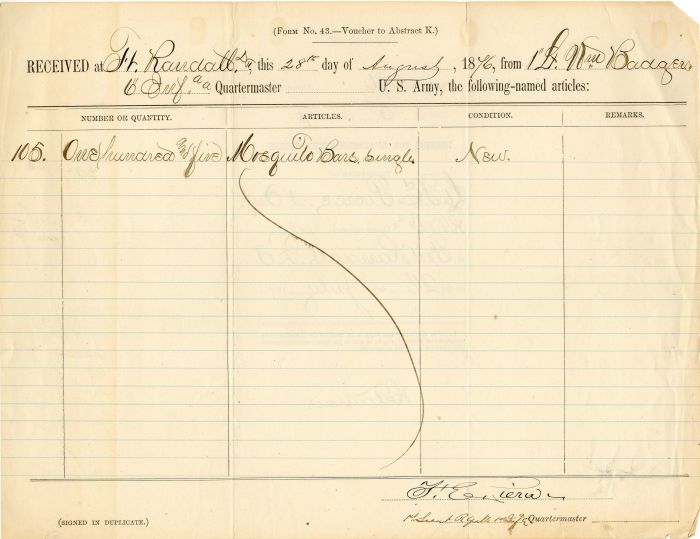 (Form No. 43.—Voucher to Abstract K.)
RECEIVED at Ft. Randall, Da, this 28th day of August, 1876, from 1" Lt. Wm Badger
6" Inf. aa Quartermaster U. S. Army, the following-named articles:
NUMBER OR QUANTITY. ARTICLES. CONDITION. REMARKS.
105. One hundred and five Mosquito Bars, single New.
F. E.
1st Lieut Quartermaster
(SIGNED IN DUPLICATE.)